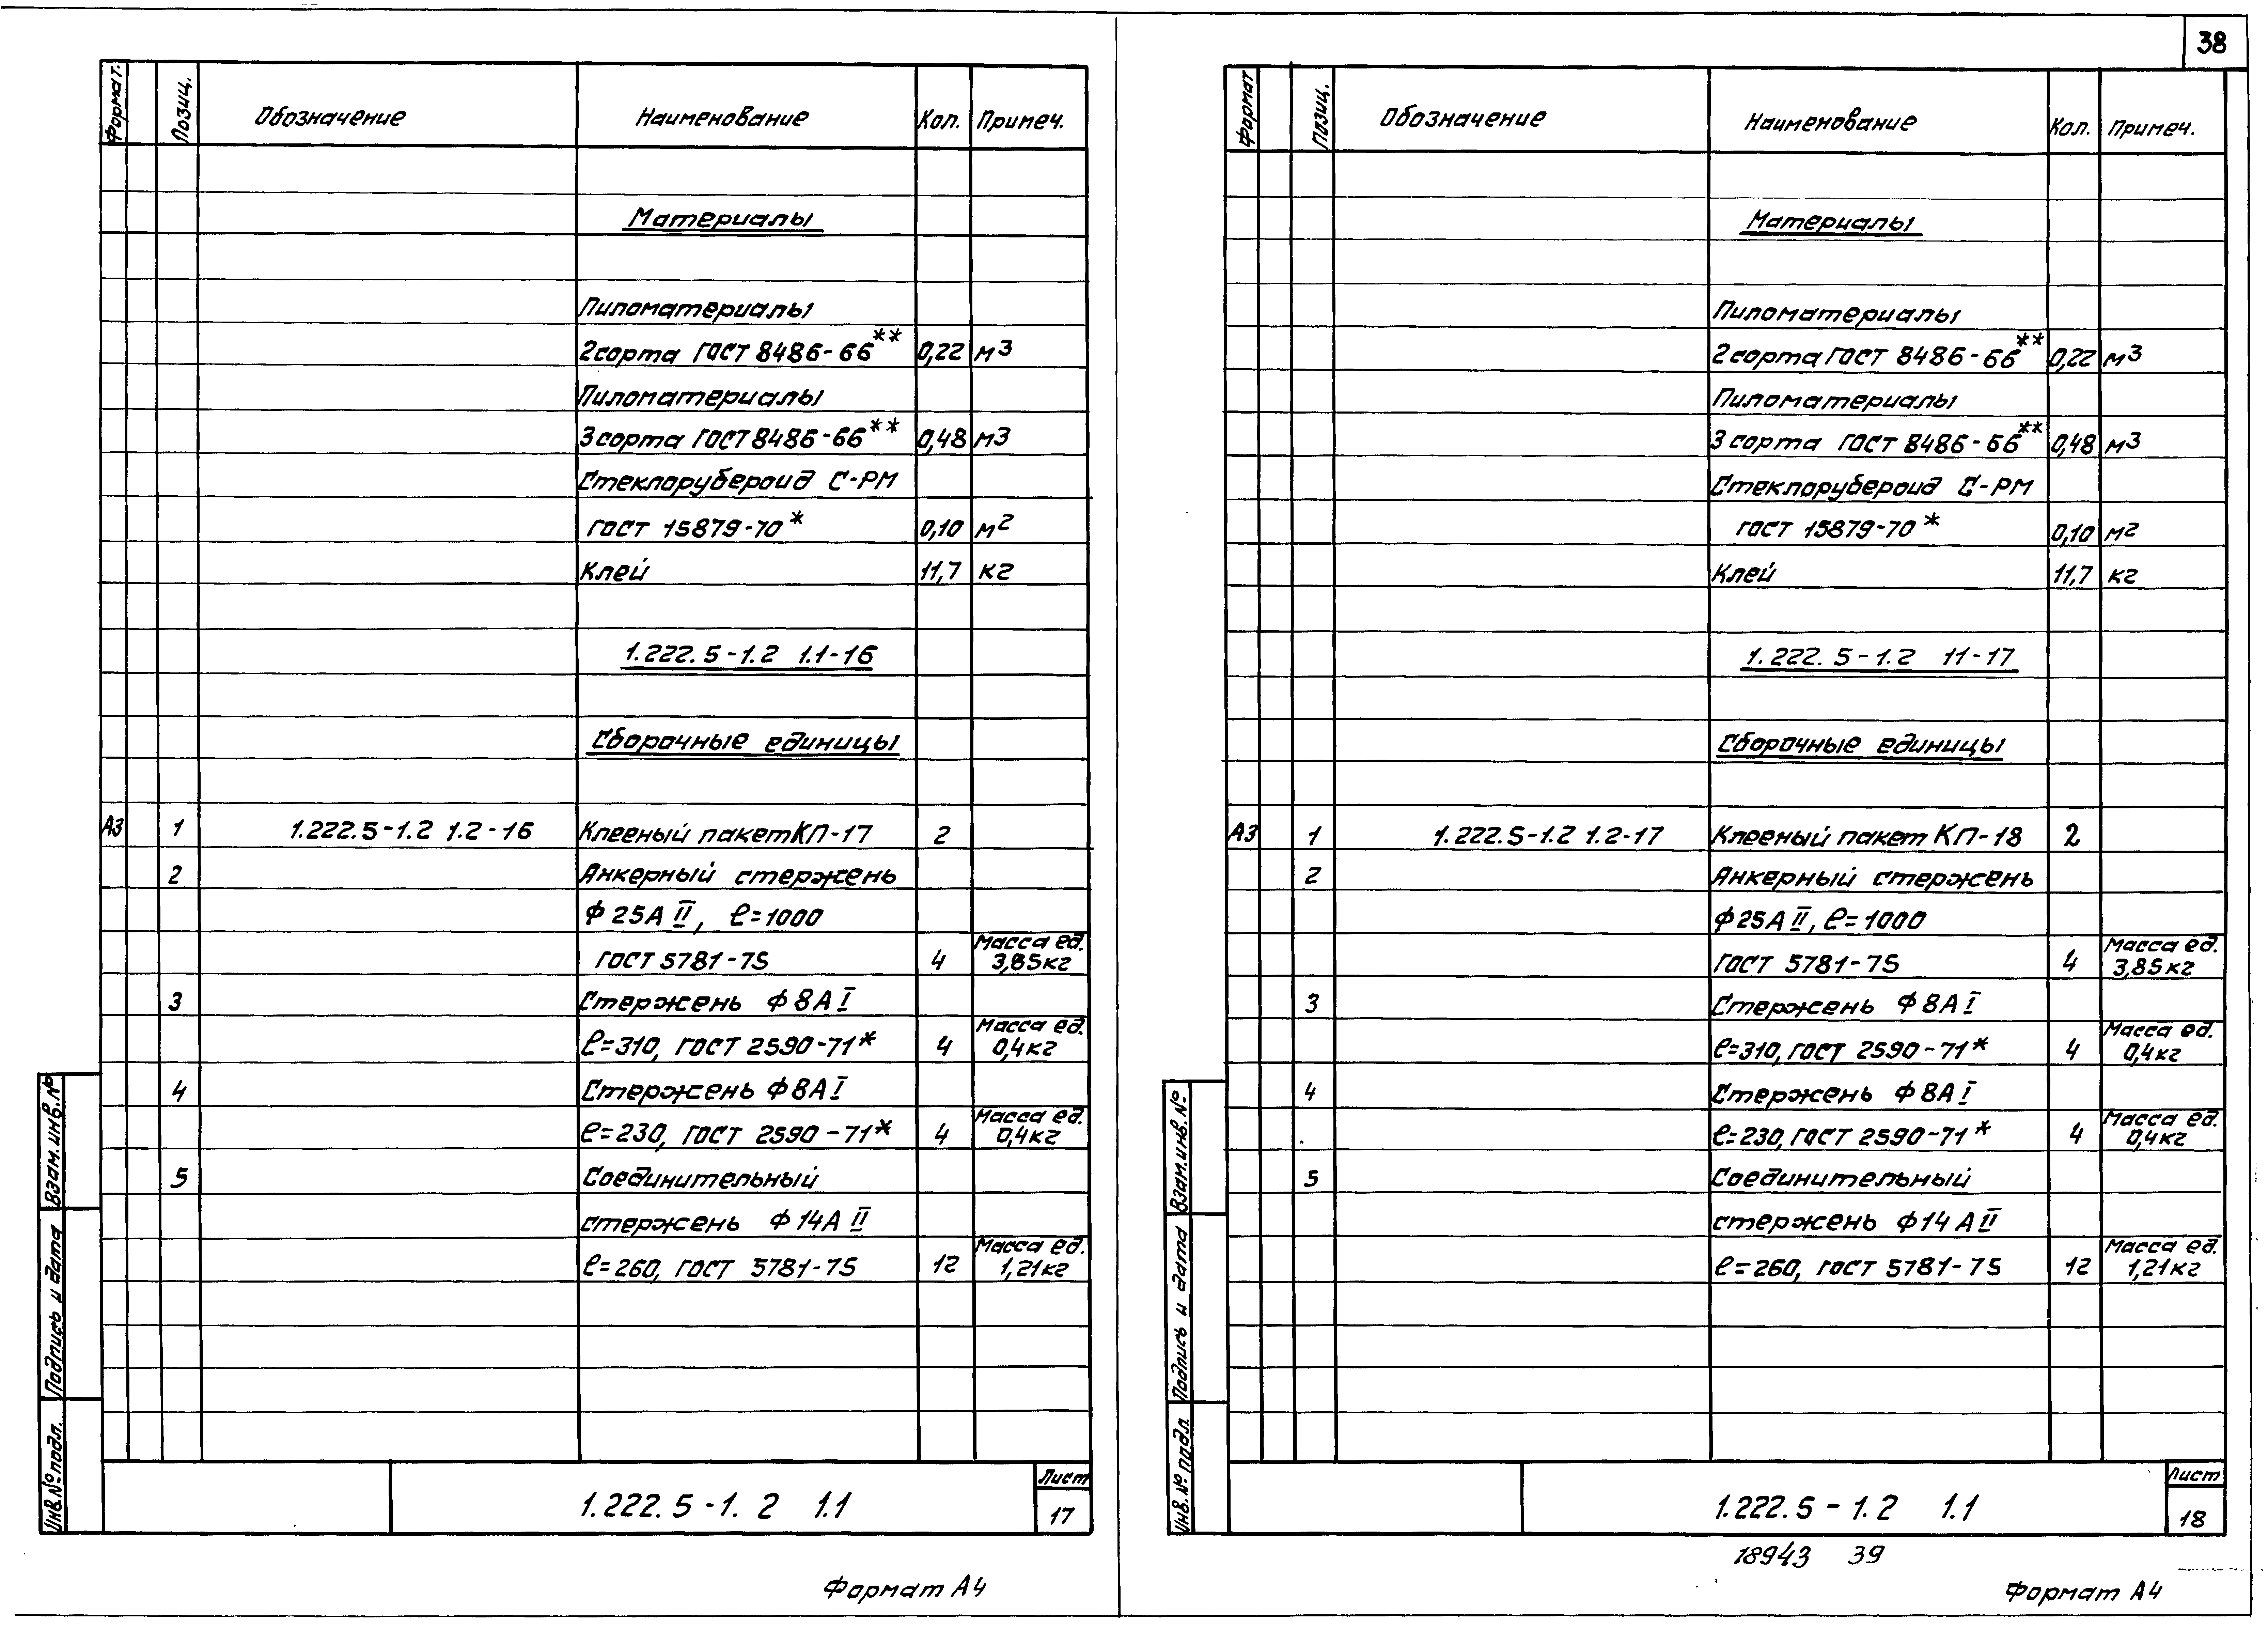 38
Формат. Позиц. Обозначение Наименование Кол. Примеч.
Материалы
Пиломатериалы
2 сорта ГОСТ 8486-66** 0,22 м3
Пиломатериалы
3 сорта ГОСТ 8486-66** 0,48 м3
Стеклорубероид С-РМ
ГОСТ 15879-70* 0,10 м2
Клей 11,7 кг
1.222.5-1.2 1.1-16
Сборочные единицы
А3 1 1.222.5-1.2 1.2-16 Клееный пакет КП-17 2
2 Анкерный стержень
Ф 25А II, ℓ=1000
Масса ед.
ГОСТ 5781-75 4 3,85кг
3 Стержень Ф 8А I
Масса ед.
ℓ=310, ГОСТ 2590-71* 4 0,4кг
4 Стержень Ф 8А I
Масса ед.
ℓ=230, ГОСТ 2590-71* 4 0,4кг
5 Соединительный
стержень Ф 14А II
Масса ед.
ℓ=260, ГОСТ 5781-75 12 1,21кг
Взам.инв.№
Подпись и дата
Инв.№ подл.
1.222.5-1.2 1.1
Лист
17
Формат А4
Формат Позиц. Обозначение Наименование Кол. Примеч.
Материалы
Пиломатериалы
2 сорта ГОСТ 8486-66** 0,22 м3
Пиломатериалы
3 сорта ГОСТ 8486-66** 0,48 м3
Стеклорубероид С-РМ
ГОСТ 15879-70* 0,10 м2
Клей 11,7 кг
1.222.5-1.2 11-17
Сборочные единицы
А3 1 1.222.5-1.2 1.2-17 Клееный пакет КП-18 2
2 Анкерный стержень
Ф 25А II, ℓ=1000
Масса ед.
ГОСТ 5781-75 4 3,85кг
3 Стержень Ф 8А I
Масса ед.
ℓ=310, ГОСТ 2590-71* 4 0,4кг
4 Стержень Ф 8А I
Масса ед.
ℓ=230, ГОСТ 2590-71* 4 0,4кг
5 Соединительный
стержень Ф 14 А II
Масса ед.
ℓ=260, ГОСТ 5781-75 12 1,21кг
Взам.инв.№
Подпись и дата
Инв.№ подл.
1.222.5-1.2 1.1
Лист
18
18943 39
Формат А4